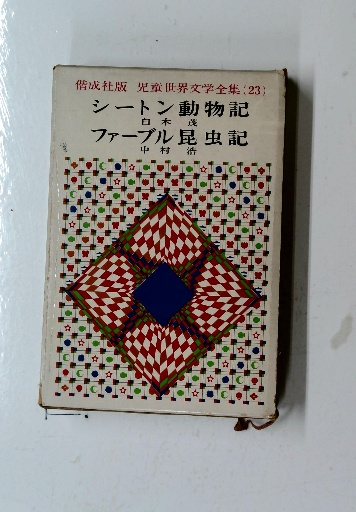 偕成社版 児童世界文学全集(23)
シートン動物記
白木茂
ファーブル昆虫記
中村浩